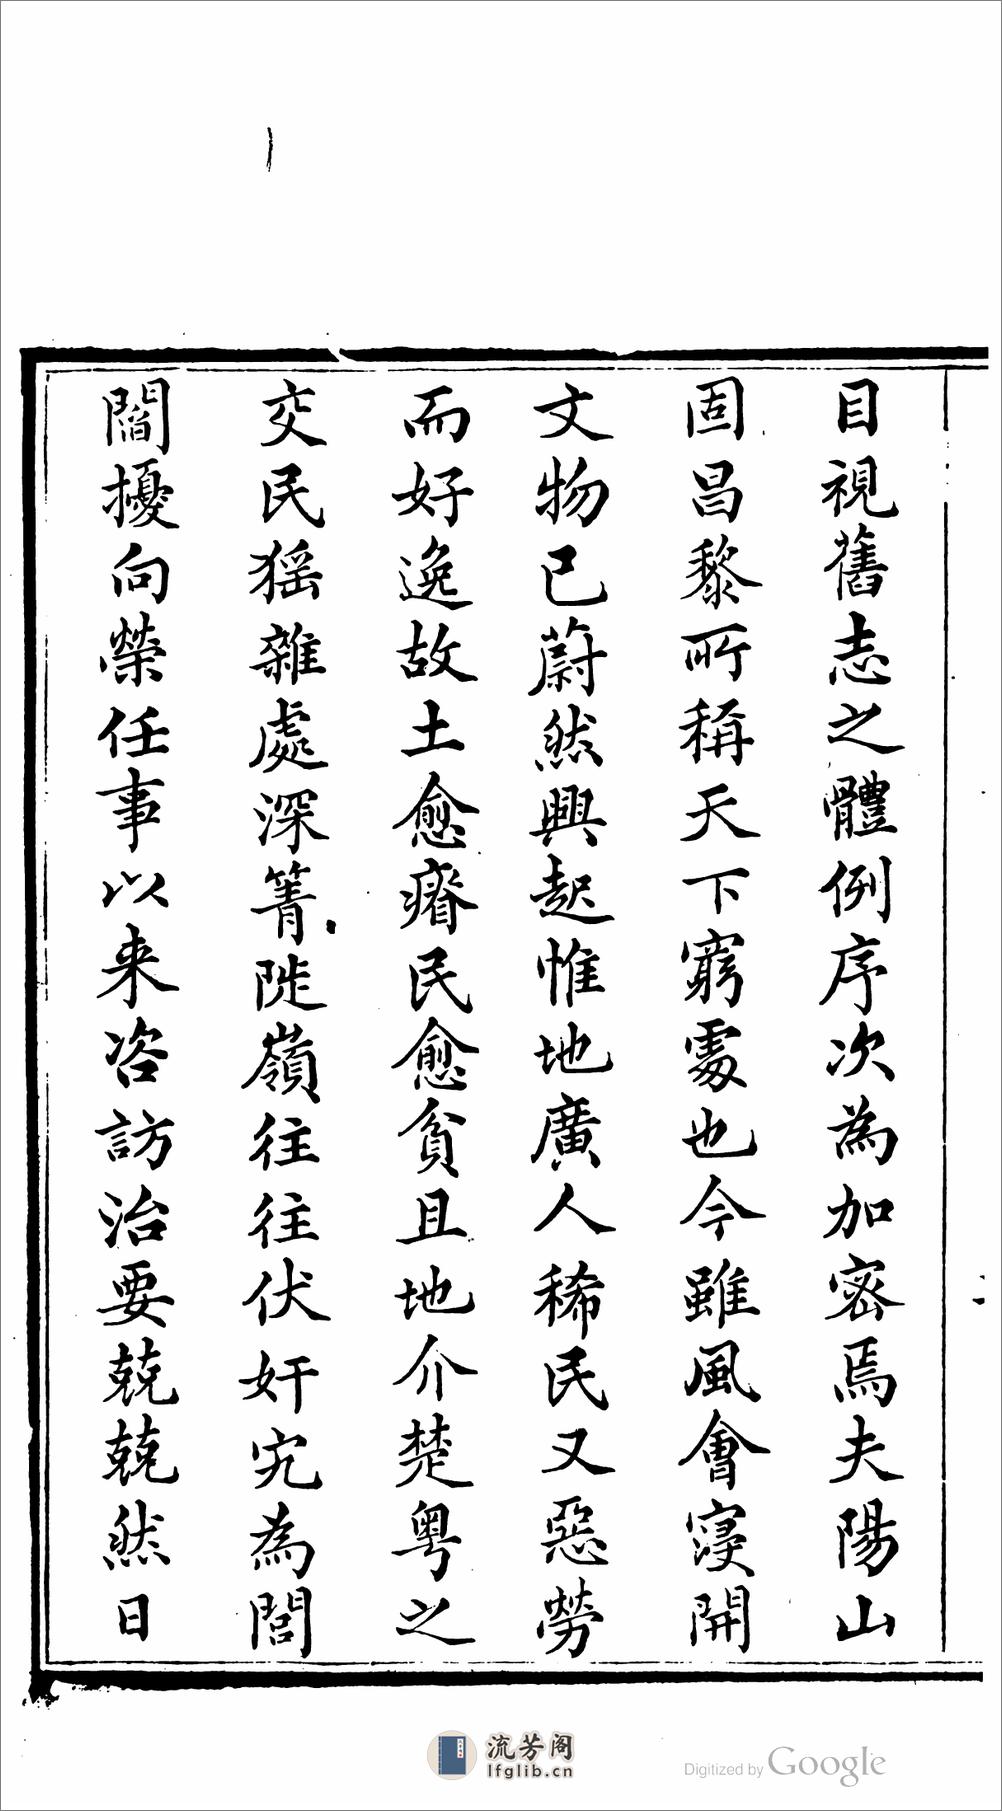 目視舊志之體例序次為加密焉夫陽山
固昌黎所稱天下窮處也今雖風會寖開
文物已蔚然興起惟地廣人稀民又惡勞
而好逸故土愈瘠民愈貧且地介楚粤之
交民猺雜處深箐陡嶺往往伏奸宄為閭
閻擾向榮任事以来咨訪治要兢兢然日
流芳阁
lfglib.cn
Digitized by Google